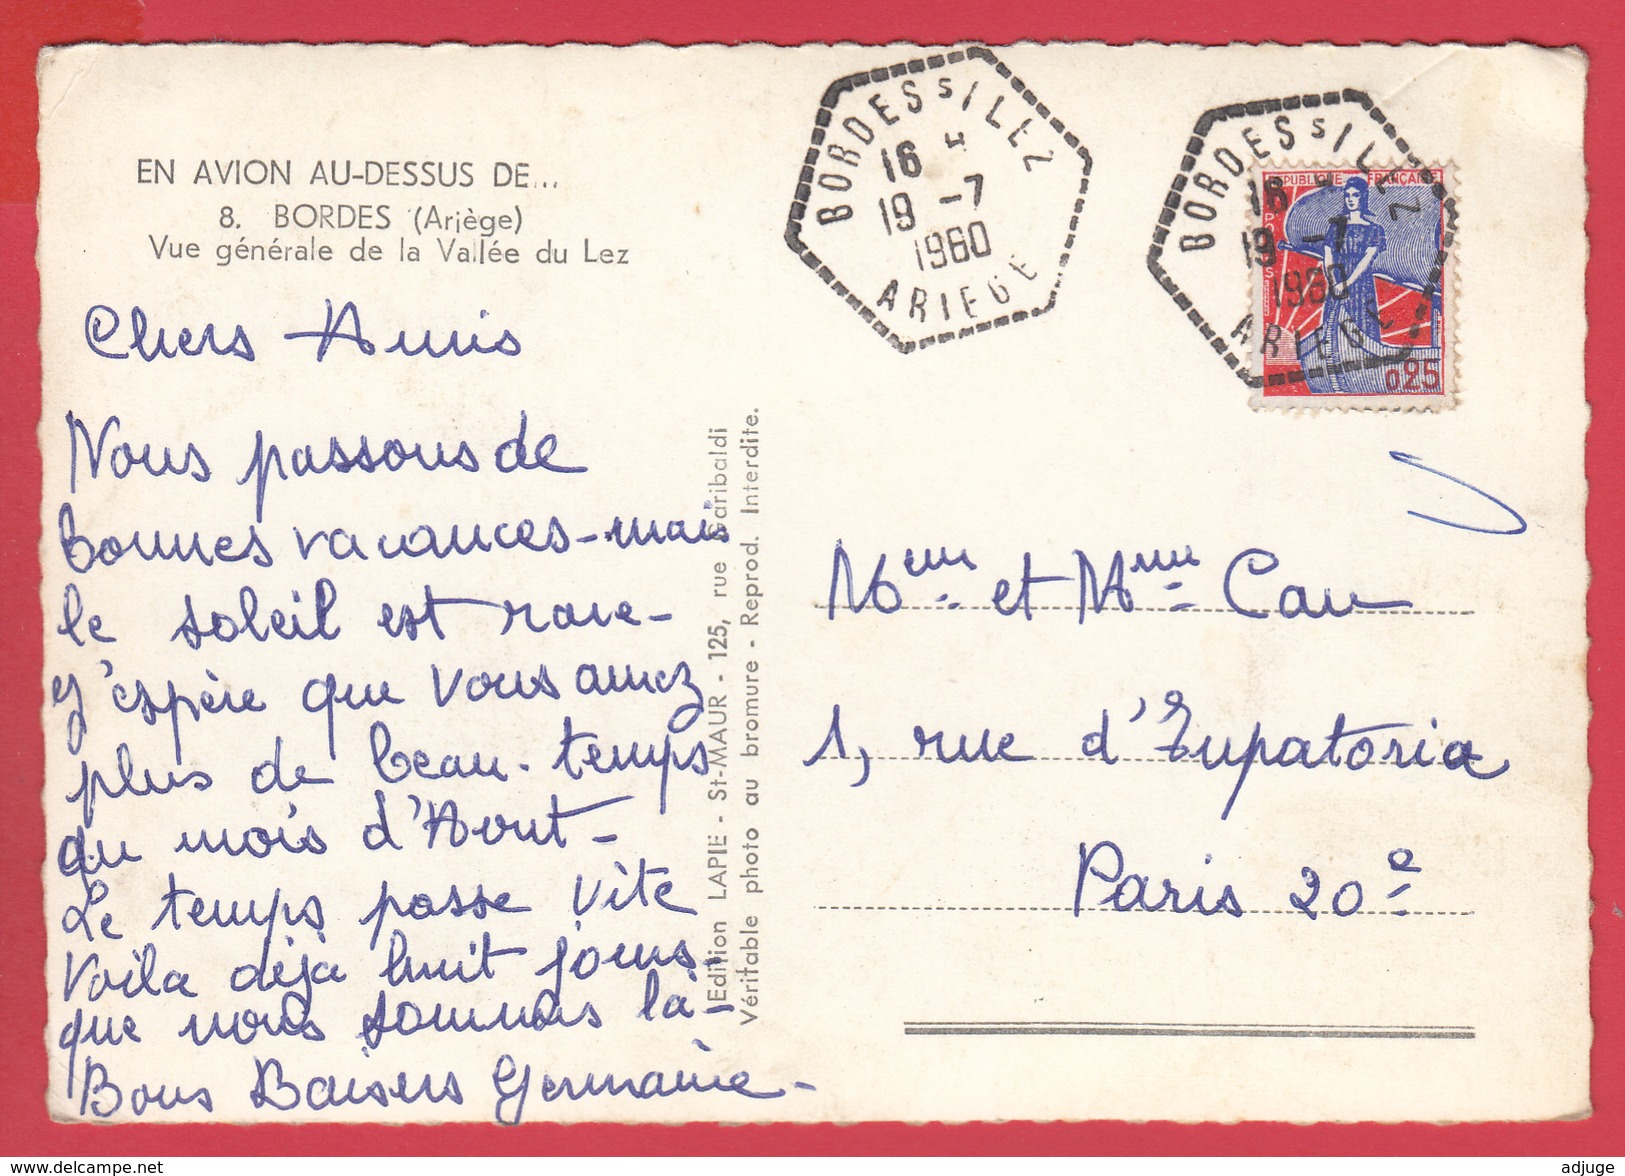 EN AVION AU-DESSUS DE...
8. BORDES (Ariège)
Vue générale de la Vallée du Lez
Chers Amis
Nous passons de
bonnes vacances - mais
le soleil est rare -
J'espère que vous aurez
plus de beau-temps
au mois d'Aout -
Le temps passe vite
Voila déja huit jours -
que nous sommes là -
Bons Baisers Germaine -
Edition LAPIE - St-MAUR - 125, rue Garibaldi
Véritable photo au bromure - Reprod. Interdite.
BORDES s/LEZ
16 H
19 -7
1960
ARIEGE
BORDES s/LEZ
16 H
19 -7
1960
ARIEGE
REPUBLIQUE FRANÇAISE
POSTES
0,25
et Mme Cau
1, rue d'Eupatoria
Paris 20e
delcampe.net
adjuge